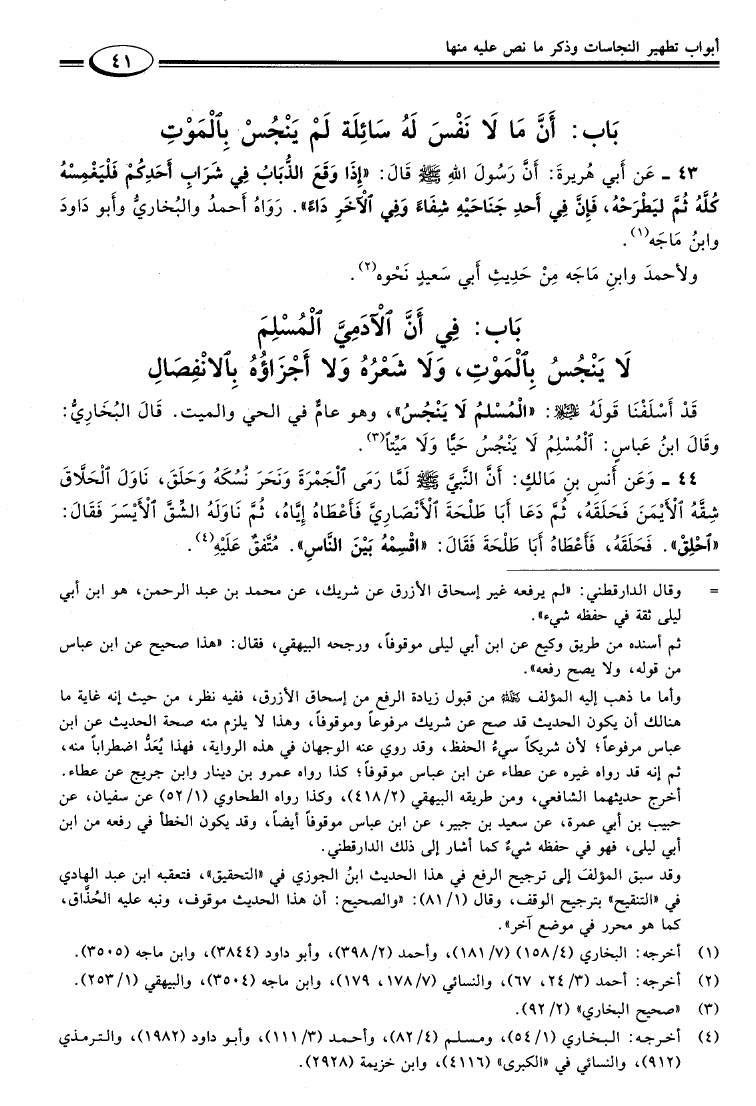 أبواب تطهير النجاسات وذكر ما نص عليه منها
٤١
بَاب: أَنَّ مَا لَا نَفْسَ لَهُ سَائِلَة لَمْ يَنْجُسْ بِالْمَوْتِ
٤٣ ـ عَن أَبي هُريرةَ: أَنَّ رَسُولَ اللهِ ﷺ قَالَ: «إِذَا وَقَعَ الذُّبَابُ فِي شَرَابِ أَحَدِكُمْ فَلْيَغْمِسْهُ
كُلَّهُ ثُمَّ لِيَطْرَحْهُ، فَإِنَّ فِي أَحدِ جَنَاحَيْهِ شِفَاءً وَفِي الْآخَرِ دَاءً». رَوَاهُ أَحمدُ والبُخاريُّ وأَبو دَاودَ
وابنُ مَاجَه(١).
ولأحمدَ وابنِ مَاجَه مِنْ حَدِيثِ أَبي سَعيدٍ نَحْوه(٢).
بَاب: فِي أَنَّ الْآدَمِيَّ الْمُسْلِمَ
لَا يَنْجُسُ بِالْمَوْتِ، وَلَا شَعْرُهُ وَلَا أَجْزَاؤُهُ بِالانْفِصَالِ
قَدْ أَسْلَفْنَا قَولَهُ ﷺ: «الْمُسْلِمُ لَا يَنْجُسُ»، وهو عامٌّ في الحي والميت. قَالَ البُخَارِيُّ:
وقَالَ ابنُ عَباسٍ: الْمُسْلِمُ لَا يَنْجُسُ حَيًّا وَلَا مَيِّتاً(٣).
٤٤ ـ وَعَن أَنسِ بنِ مَالكٍ: أَنَّ النَّبيَّ ﷺ لَمَّا رَمَى الْجَمْرَةَ وَنَحَرَ نُسُكَهُ وَحَلَقَ، نَاوَلَ الْحَلَّاقَ
شِقَّهُ الْأَيْمَنَ فَحَلَقَهُ، ثُمَّ دَعَا أَبَا طَلْحَةَ الْأَنْصَارِيَّ فَأَعْطَاهُ إِيَّاهُ، ثُمَّ نَاوَلَهُ الشِّقَّ الْأَيْسَرَ فَقَالَ:
«احْلِقْ». فَحَلَقَهُ، فَأَعْطَاهُ أَبَا طَلْحَةَ فَقَالَ: «اقْسِمْهُ بَيْنَ النَّاسِ». مُتَّفَقٌ عَلَيْهِ(٤).
= وقال الدارقطني: «لم يرفعه غير إسحاق الأزرق عن شريك، عن محمد بن عبد الرحمن، هو ابن أبي
ليلى ثقة في حفظه شيء».
ثم أسنده من طريق وكيع عن ابن أبي ليلى موقوفاً، ورجحه البيهقي، فقال: «هذا صحيح عن ابن عباس
من قوله، ولا يصح رفعه».
وأما ما ذهب إليه المؤلف رحمه الله من قبول زيادة الرفع من إسحاق الأزرق، ففيه نظر، من حيث إنه غاية ما
هنالك أن يكون الحديث قد صح عن شريك مرفوعاً وموقوفاً، وهذا لا يلزم منه صحة الحديث عن ابن
عباس مرفوعاً؛ لأن شريكاً سيءُ الحفظ، وقد روي عنه الوجهان في هذه الرواية، فهذا يُعَدُّ اضطراباً منه،
ثم إنه قد رواه غيره عن عطاء عن ابن عباس موقوفاً؛ كذا رواه عمرو بن دينار وابن جريج عن عطاء.
أخرج حديثهما الشافعي، ومن طريقه البيهقي (٤١٨/٢)، وكذا رواه الطحاوي (٥٢/١) عن سفيان، عن
حبيب بن أبي عمرة، عن سعيد بن جبير، عن ابن عباس موقوفاً أيضاً، وقد يكون الخطأ في رفعه من ابن
أبي ليلى، فهو في حفظه شيءٌ كما أشار إلى ذلك الدارقطني.
وقد سبق المؤلفَ إلى ترجيح الرفع في هذا الحديث ابنُ الجوزي في «التحقيق»، فتعقبه ابن عبد الهادي
في «التنقيح» بترجيح الوقف، وقال (٨١/١): «والصحيح: أن هذا الحديث موقوف، ونبه عليه الحُذَّاق،
كما هو محرر في موضع آخر».
(١) أخرجه: البخاري (١٥٨/٤) (١٨١/٧)، وأحمد (٣٩٨/٢)، وأبو داود (٣٨٤٤)، وابن ماجه (٣٥٠٥).
(٢) أخرجه: أحمد (٢٤/٣، ٦٧)، والنسائي (١٧٨/٧، ١٧٩)، وابن ماجه (٣٥٠٤)، والبيهقي (٢٥٣/١).
(٣) «صحيح البخاري» (٩٢/٢).
(٤) أخرجه: البخاري (٥٤/١)، ومسلم (٨٢/٤)، وأحمد (١١١/٣)، وأبو داود (١٩٨٢)، والترمذي
(٩١٢)، والنسائي في «الكبرى» (٤١١٦)، وابن خزيمة (٢٩٢٨).